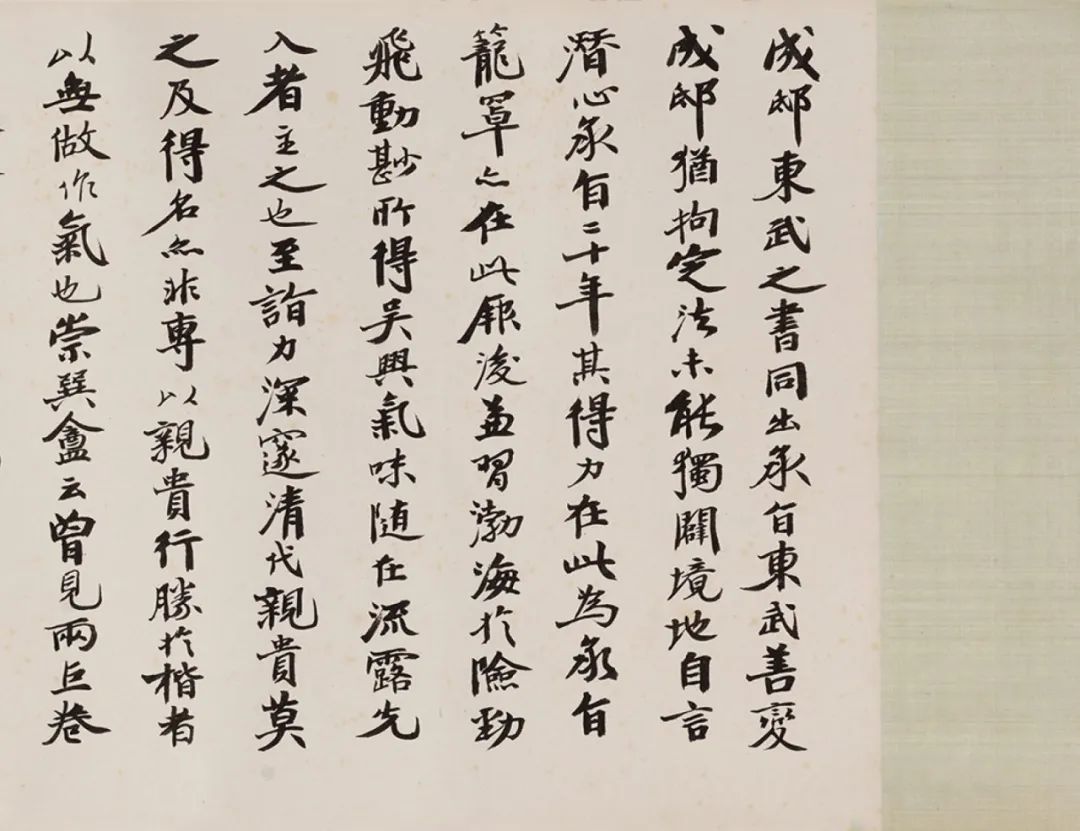 成邸東武之書同出永白東武善變
成邸猶拘定法未能獨闢境地自言
潛心永白二十年其得力在此為永白
籠罩亦在此厥後兼習渤海於險勁
飛動尠所得吳興氣味随在流露先
入者主之也至詣力深邃清代親貴莫
之及得名亦非專以親貴行勝於楷者
以無做作氣也崇巽盦云曾見兩巨卷